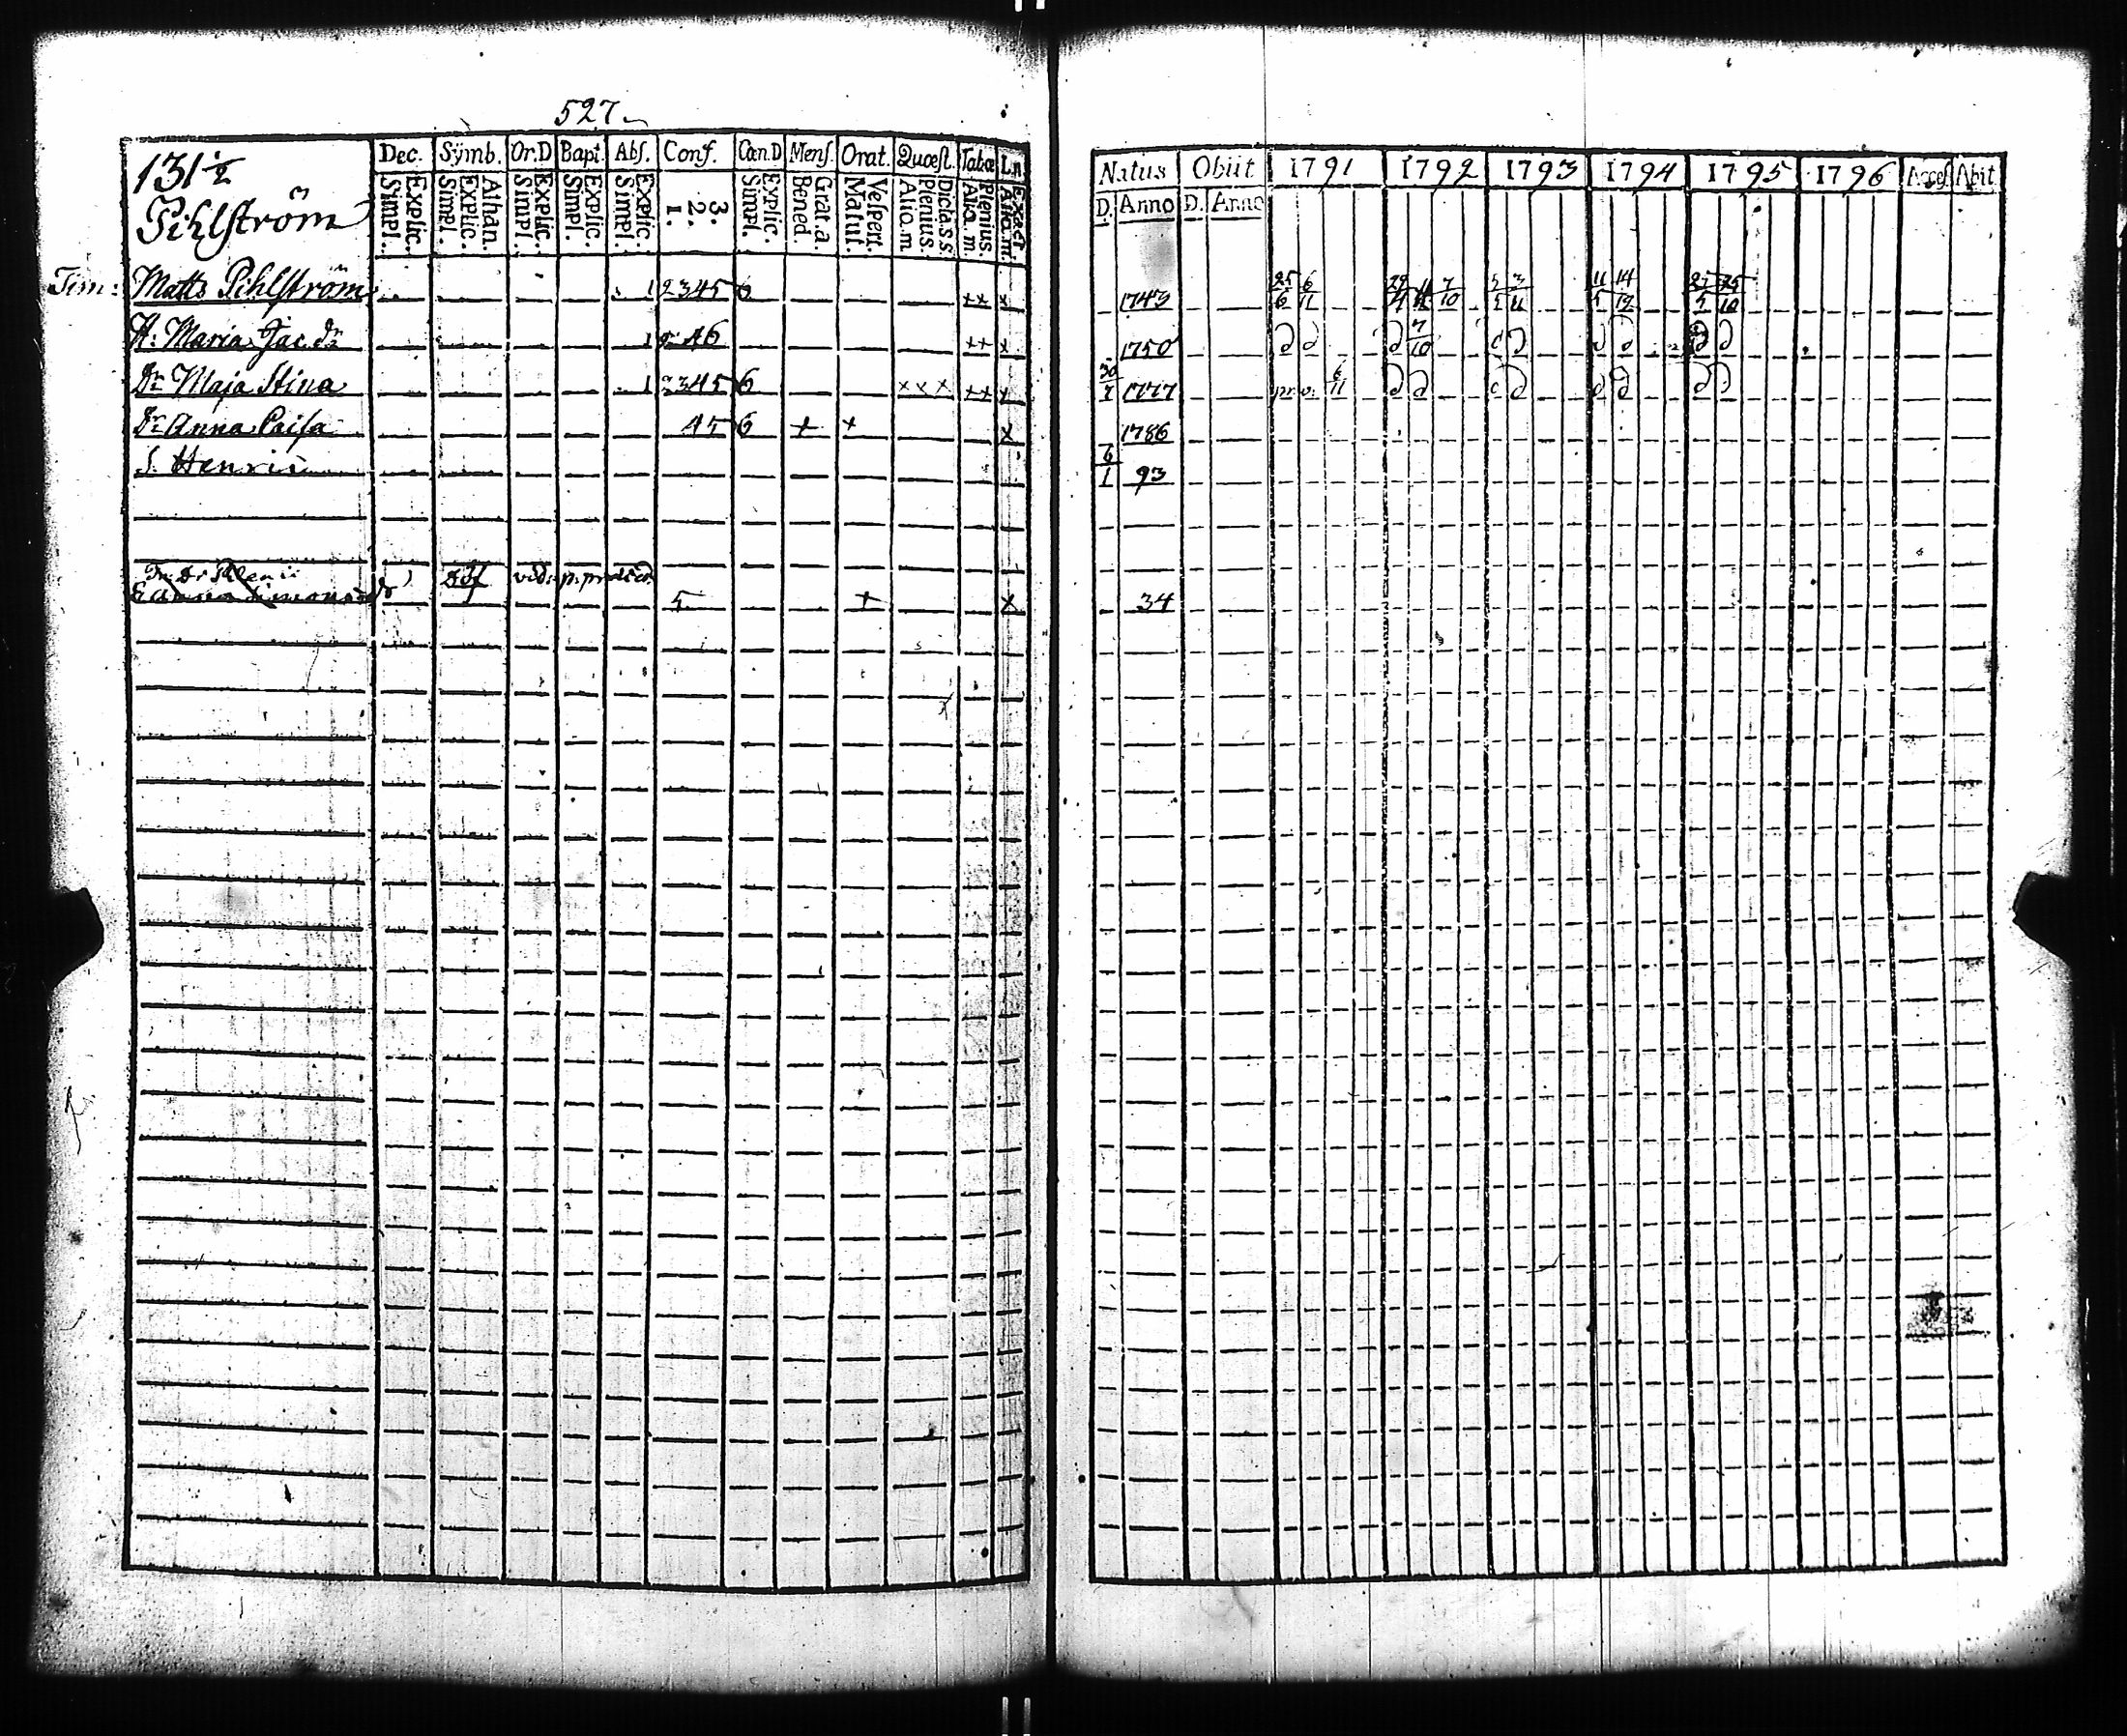 527
131 1/2
Pihlström
Dec. Symb. Or.D Bapt. Abs. Conf. Cœn.D Mens. Orat. Quœst. Tabœ L.n
Simpl. Explic. Simpl. Explic. Athan. Simpl. Explic. Simpl. Explic. Simpl. Explic. 1. 2. 3. Simpl. Explic. Bened. Grat.a. Matut. Vespert. Alio.m Plenius. Dictass. Alio.m Plenius. Alio.m. Exact
Natus Obiit 1791 1792 1793 1794 1795 1796 Acces Abit
D. Anno D. Anno
Tim: Matts Pihlström 1 2345 6 xx x 1743 25/6 6/11 7/10 5/5 3/11 11/5 14/12 27/5 25/10
H: Maria Jac.dr 1 46 xx x 1750 7/10
Dr Maja Stina 1 2345 6 xxx xx x 30/7 1777 6/11
Dr Anna Caisa 45 6 + + x 1786
S. Henric 6/1 93
vid. p.
5 + x 34